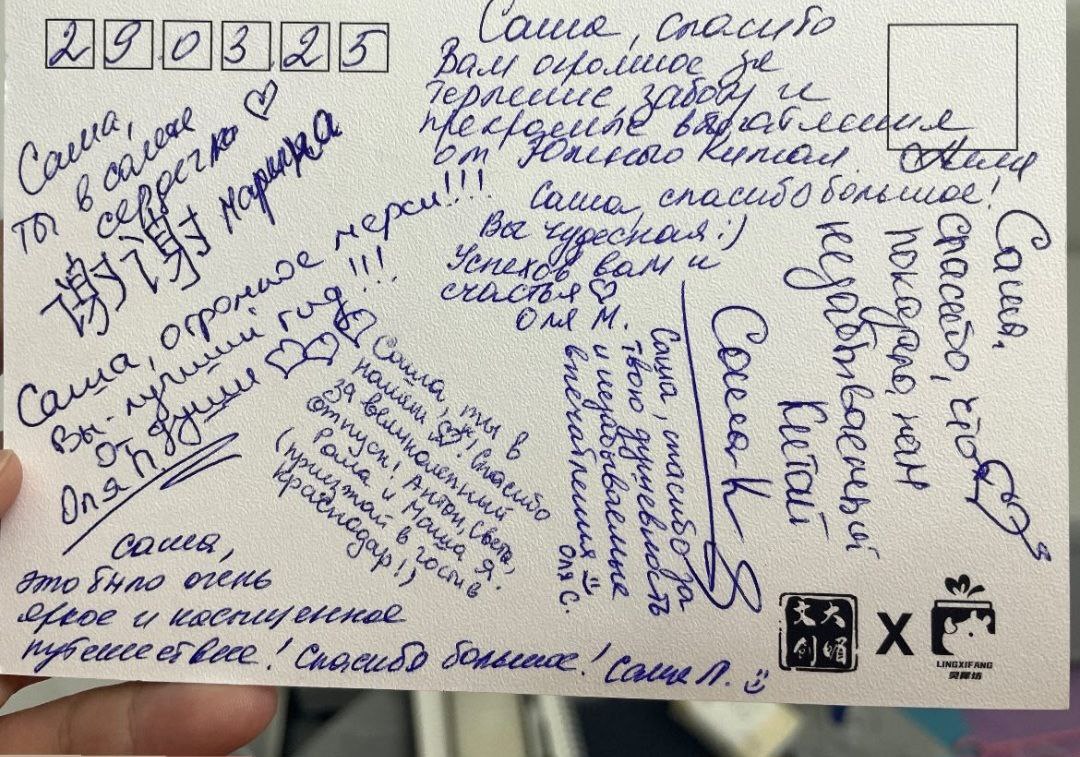 290325
Саша, спасибо
Вам огромное за
терпение, заботу и
прекрасные впечатления
от Южного Китая.
Саша,
ты в самое
сердечко ♡
谢谢 Марина
Саша, спасибо большое!
Вы чудесная :)
Успехов вам и
счастья ♡
Оля М.
Саша, огромное мерси!!!
Вы - лучший гид!!!
От души ♡♡♡
Оля П.
Саша, ты в
нашем ♡! Спасибо
за великолепный
отпуск! Антон, Света,
Рома и Маша Я.
(приезжай в гости в
Краснодар!)
Саша, спасибо за
твою душевность
и незабываемые
впечатления
Оля С.
Саша К
Саша,
спасибо, что
показала нам
незабываемый
Китай
Саша,
это было очень
яркое и насыщенное
путешествие! Спасибо большое! Саша Л.
大嘴
文创
X
LINGXIFANG
灵犀坊